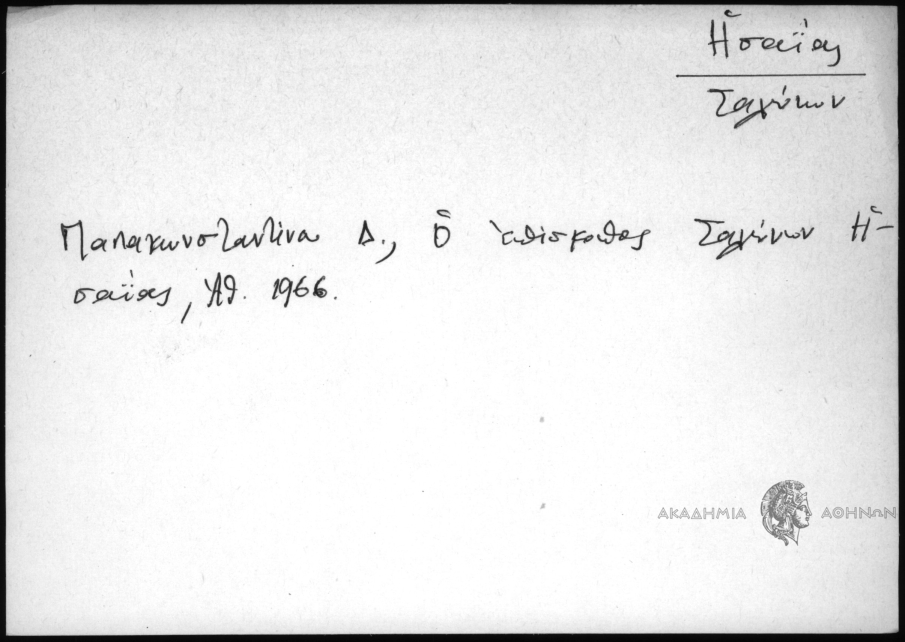 Ἠσαΐας
Σαλώνων
Παπακωνσταντίνου Δ., Ὁ ἐπίσκοπος Σαλώνων Ἠ-
σαΐας, Ἀθ. 1966.
ΑΚΑΔΗΜΙΑ ΑΘΗΝΩΝ